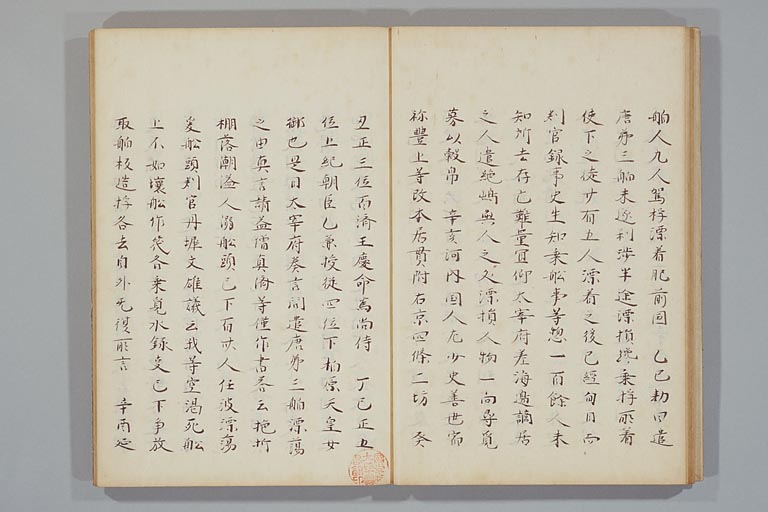 舶人九人駕桴漂着肥前国　乙巳勅曰遣
唐第三舶未遂利渉半途漂損纔乗桴所着
使下之徒廿有五人漂着之後已經旬日而
判官録事史生知乗舩事等惣一百餘人未
知所去存亡難量冝仰太宰府差海邊謫居
之人遣絶嶋無人之處漂損人物一向尋覓
募以穀帛　辛亥河内国人左少史善世宿
祢豊上等改本居貫附右京四條二坊　癸
丑正三位百濟王慶命為尚侍　丁巳正五
位上紀朝臣乙魚授従四位下柏原天皇女
御也是日太宰府奏言問遣唐第三舶漂蕩
之由真言請益僧真済等僅作書荅云柂折
棚落潮溢人溺舩頭已下百卌人任波漂蕩
爰舩頭判官丹墀文雄議云我等空渇死舩
上不如壊舩作筏各乗覓水録事已下争放
取舶板造桴各去自外无復所言　辛酉延